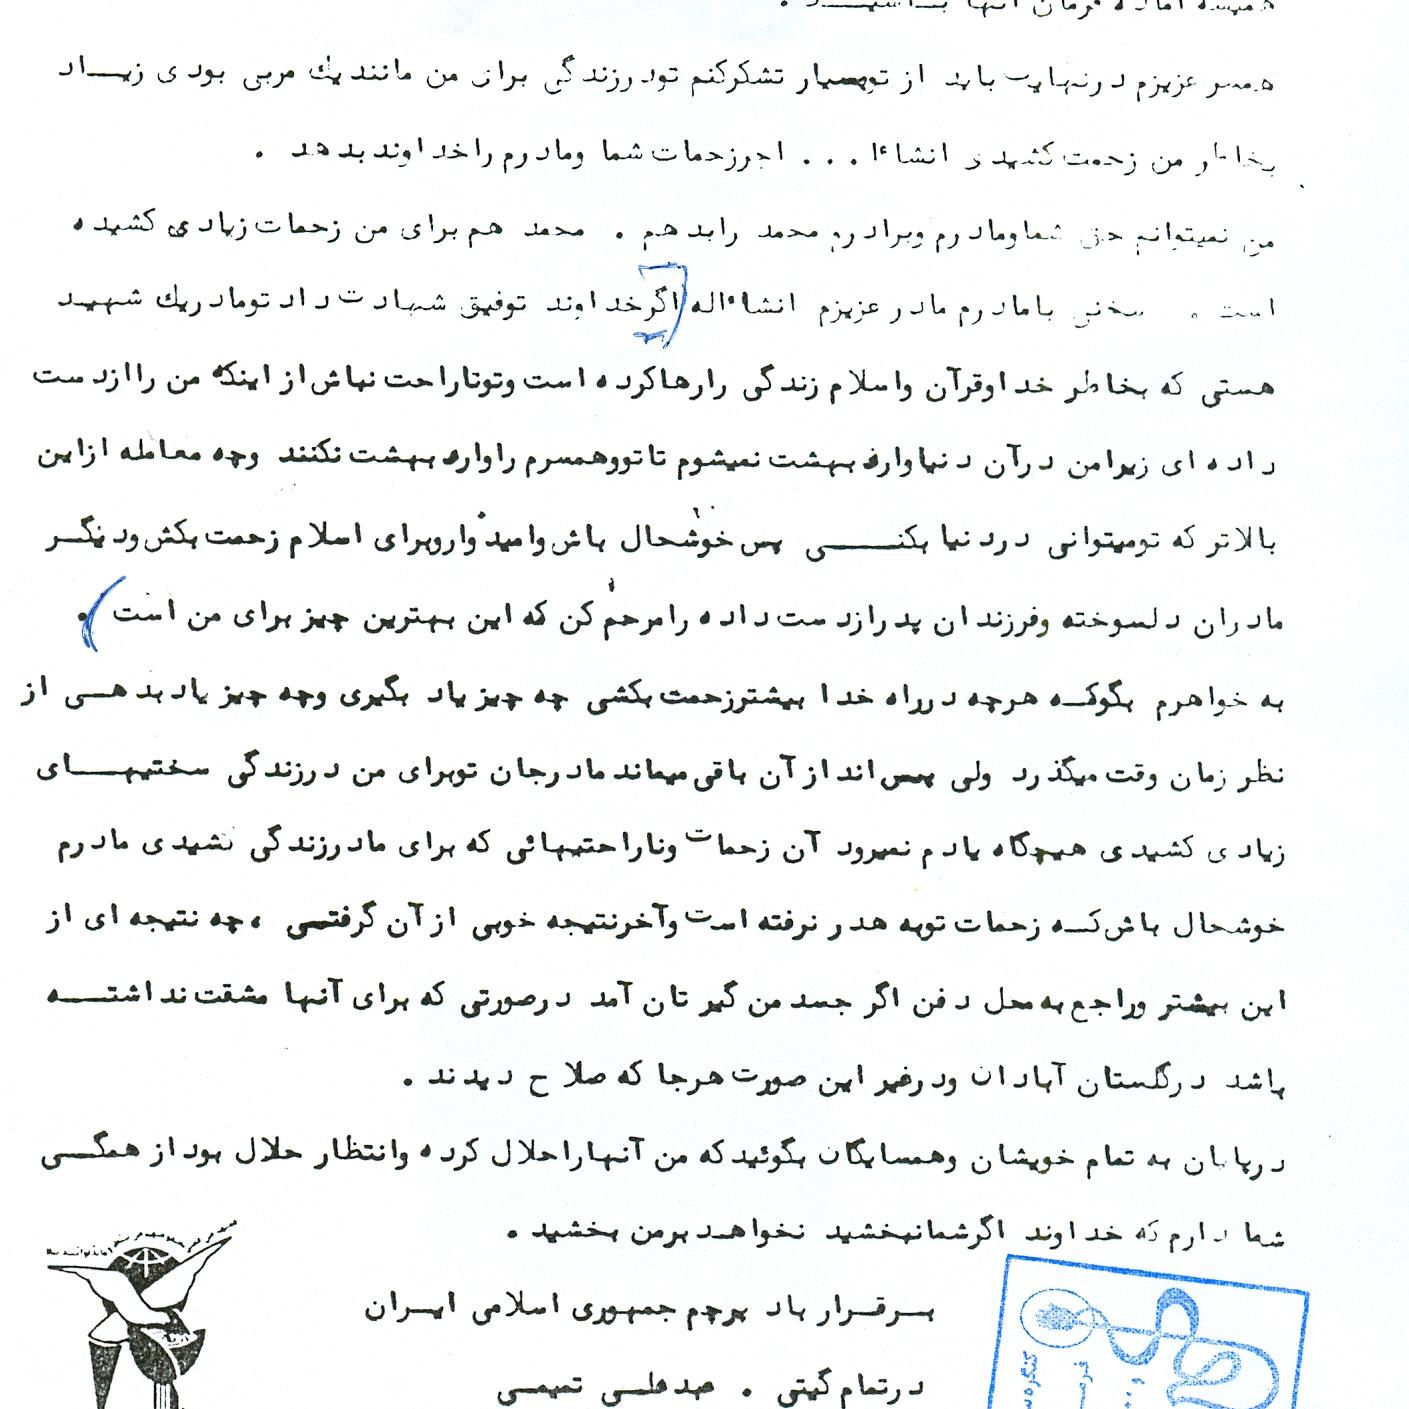 همیشه آماده فرمان آنها باشید .
همسر عزیزم درنهایت باید از توبسیار تشکرکنم تودرزندگی برای من مانندیك مربی بودی زیاد
بخاطر من زحمت کشیدی انشاءا . . . اجرزحمات شما ومادرم راخداوندبدهد .
من نمیتوانم حق شماومادرم وبرادرم محمد رابدهم . محمد هم برای من زحمات زیادی کشیده
است . سخنی بامادرم مادر عزیزم انشاءاله اگرخداوند توفیق شهادت داد تومادریك شهید
هستی که بخاطر خداوقرآن واسلام زندگی رارهاکرده است وتوناراحت نباش از اینکه من راازدست
داده ای زیرامن درآن دنیاوارد بهشت نمیشوم تاتووهمسرم راوارد بهشت نکنند وچه معامله ازاین
بالاتر که تومیتوانی دردنیا بکنی پس خوشحال باش وامیدواروبرای اسلام زحمت بکش ودیگر
مادران دلسوخته وفرزندان پدرازدست داده رامرحم کن که این بهترین چیز برای من است .
به خواهرم بگوکه هرچه درراه خدا بیشترزحمت بکشی چه چیز یاد بگیری وچه چیز یادبدهی از
نظر زمان وقت میگذرد ولی پس انداز آن باقی میماند مادرجان توبرای من درزندگی سختیهای
زیادی کشیدی هیچگاه یادم نمیرود آن زحمات وناراحتیهائی که برای مادرزندگی کشیدی مادرم
خوشحال باش که زحمات توبه هدر نرفته است وآخرنتیجه خوبی از آن گرفتی ، چه نتیجه ای از
این بیشتر وراجع به محل دفن اگر جسد من گیر تان آمد درصورتی که برای آنها مشقت نداشته
باشد درگلستان آبادان ودرغیر این صورت هرجا که صلاح دیدند .
درپایان به تمام خویشان وهمسایگان بگوئیدکه من آنهاراحلال کرده وانتظار حلال بود از همگی
شما دارم که خداوند اگرشمانبخشید نخواهد برمن بخشید .
برقرار باد پرچم جمهوری اسلامی ایران
درتمام گیتی . عبدعلی تمیمی
کنگره